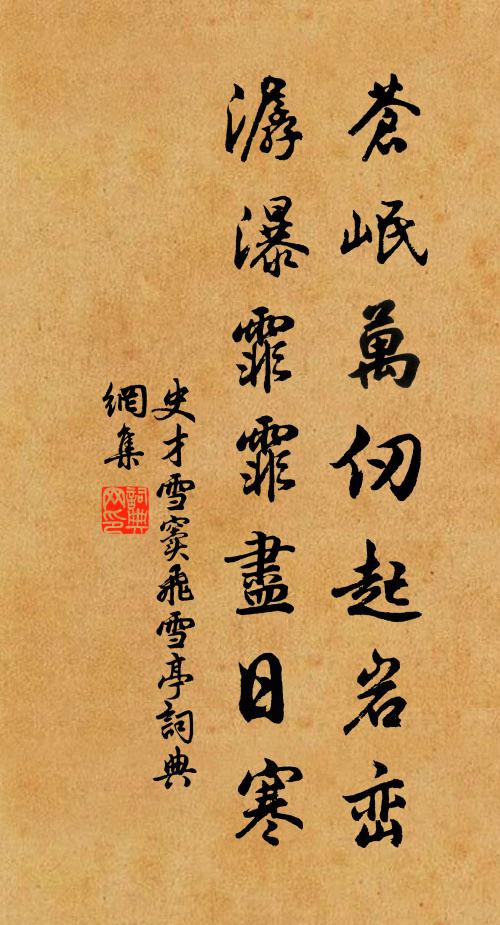 蒼岷萬仞起岩峦
潺瀑霏霏盡日寒
史才雪窦飛雪亭詞典
網集
詞典网印